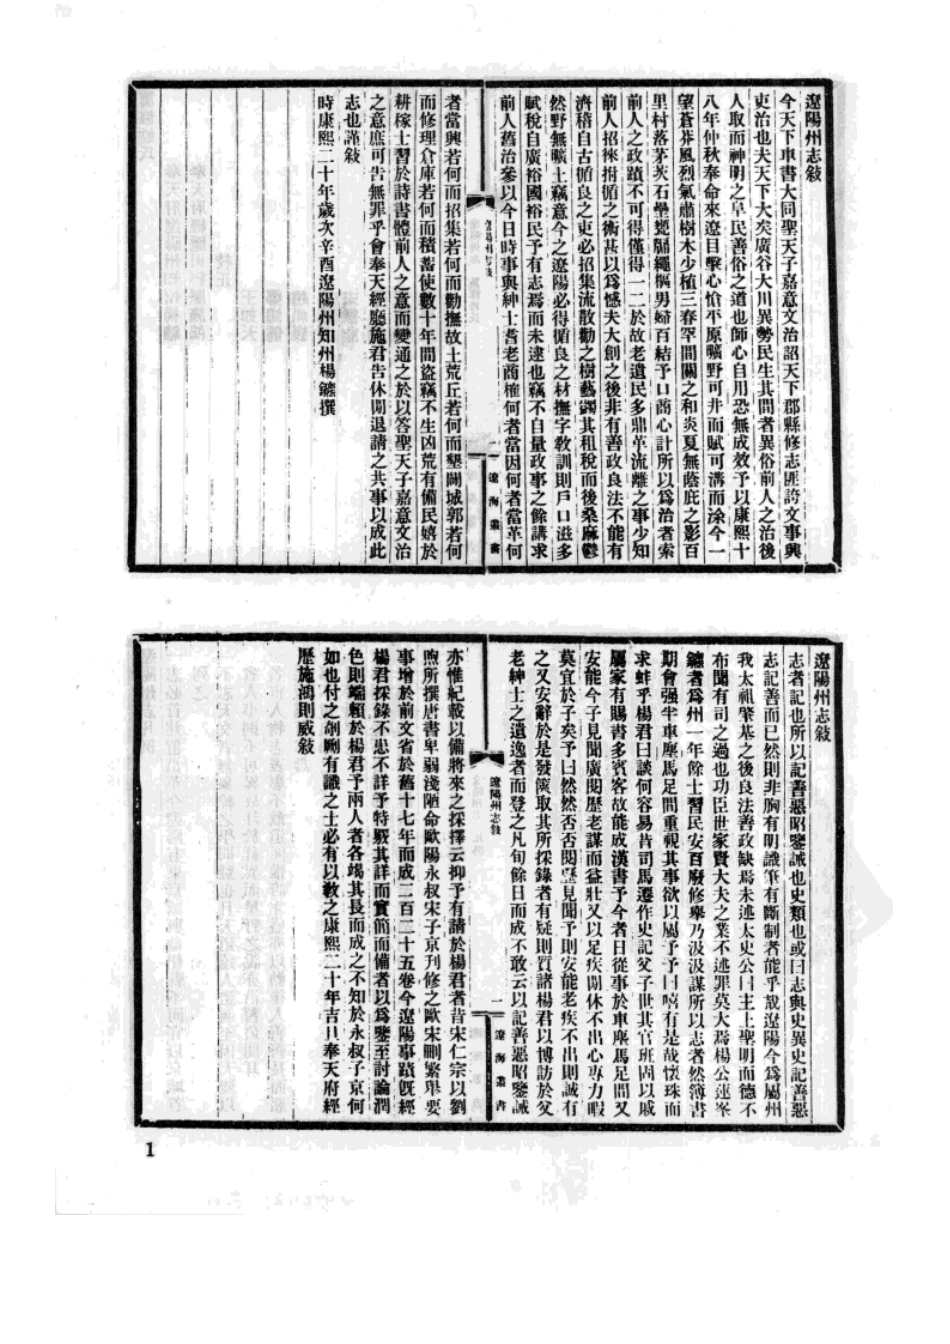 遼陽州志敍
今天下車書大同聖天子嘉意文治詔天下郡縣修志匪誇文事興
吏治也夫天下大矣廣谷大川異勢民生其間者異俗前人之治後
人取而神明之早民善俗之道也師心自用恐無成效予以康熙十
八年仲秋奉命來遼目擊心愴平原曠野可井而賦可溝而涂今一
望蒼莽風烈氣肅樹木少植三春罕間關之和炎夏無蔭庇之影百
里村落茅茨石壘甕牖繩樞男婦百結予口商心計所以爲治者索
前人之政蹟不可得僅得一二於故老遺民多鼎革流離之事少知
前人招徠拊循之術甚以爲憾夫大創之後非有善政良法不能有
濟稽自古循良之吏必招集流散勸之樹藝蠲其租稅而後桑麻鬱
然野無曠土竊意今之遼陽必得循良之材撫字敎訓則戶口滋多
賦稅自廣裕國裕民予有志焉而未逮也竊不自量政事之餘講求
前人舊治參以今日時事與紳士耆老商榷何者當因何者當革何
遼陽州志敍
一
遼海叢書
者當興若何而招集若何而勸撫故土荒丘若何而墾闢城郭若何
而修理倉庫若何而積蓄使數十年間盜竊不生凶荒有備民嬉於
耕稼士習於詩書體前人之意而變通之於以答聖天子嘉意文治
之意庶可告無罪乎會奉天經廳施君告休閒退請之共事以成此
志也謹敍
時康熙二十年歲次辛酉遼陽州知州楊鑣撰
遼陽州志敍
志者記也所以記善惡昭鑒誡也史類也或曰志與史異史記善惡
志記善而已然則非胸有明識筆有斷制者能乎哉遼陽今爲屬州
我太祖肇基之後良法善政缺焉未述太史公曰主上聖明而德不
布聞有司之過也功臣世家賢大夫之業不述罪莫大焉楊公蓮峯
鑣者爲州一年餘士習民安百廢修舉乃汲汲謀所以志者然簿書
期會强半車塵馬足間重視其事欲以屬予予曰嘻有是哉懷珠而
求蚌乎楊君曰談何容易昔司馬遷作史記父子世其官班固以戚
屬家有賜書多賓客故能成漢書予今者日從事於車塵馬足間又
安能今子見聞廣閱歷老謀而益壯又以足疾閒休不出心專力暇
莫宜於子矣予曰然然否否閱歷見聞予則安能老疾不出則誠有
之又安辭於是發篋取其所採錄者有疑則質諸楊君以博訪於父
老紳士之遺逸者而登之凡旬餘日而成不敢云以記善惡昭鑒誡
遼陽州志敍
一
遼海叢書
亦惟紀載以備將來之採擇云抑予有請於楊君者昔宋仁宗以劉
煦所撰唐書卑弱淺陋命歐陽永叔宋子京刊修之歐宋刪繁舉要
事增於前文省於舊十七年而成二百二十五卷今遼陽事蹟旣經
楊君採錄不患不詳予特覈其詳而實簡而備者以爲鑒至討論潤
色則端賴於楊君予兩人者各竭其長而成之不知於永叔子京何
如也付之剞劂有識之士必有以敎之康熙二十年吉旦奉天府經
歷施鴻則威敍
1